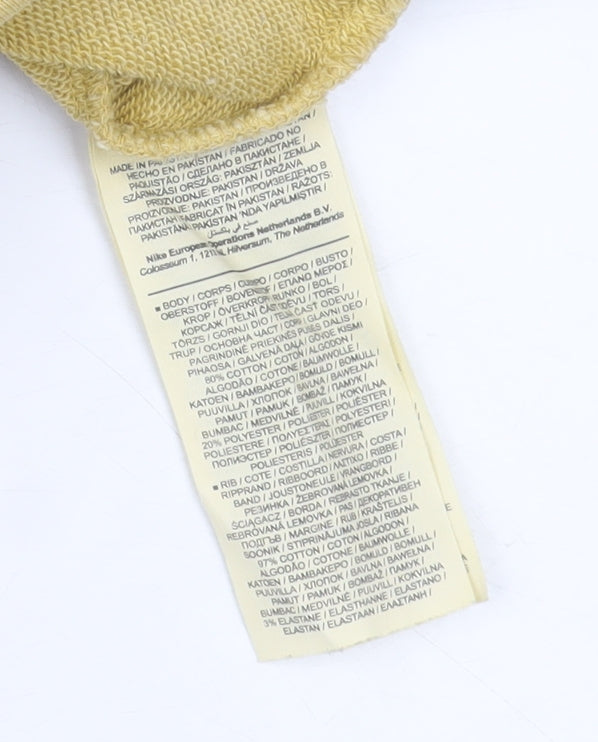 MADE IN
HECHO EN PAKISTAN / FABRICADO NO
PAQUISTÃO / СДЕЛАНО В ПАКИСТАНЕ /
SZÁRMAZÁSI ORSZÁG: PAKISZTÁN / ZEMLJA
PROIZVODNJE: PAKISTAN / DRŽAVA
PROIZVODNJE: PAKISTAN / ПРОИЗВЕДЕНО В
ПАКИСТАН FABRICAT ÎN PAKISTAN / RAŽOTS:
PAKISTĀN PAKISTAN 'NDA YAPILMIŞTIR /
صنع في باكستان
Nike European Operations Netherlands B.V.
Colosseum 1, 1213 Hilversum, The Netherlands
■ BODY / CORPS / CUERPO / CORPO / BUSTO /
OBERSTOFF / BOVENSTOF / ΕΠΑΝΩ ΜΕΡΟΣ /
KROP / ÖVERKROPP RUNKO / BOL /
КОРСАЖ / TĚLNÍ ČÁST ODĚVU / TORS /
TÖRZS / GORNJI DIO ODEVU /
TRUP / ОСНОВНА ЧАСТ / CORP / GLAVNI DEO /
PAGRINDINĖ PRIEKINĖS PUSĖS DALIS /
PIHAOSA / GALVENĀ DAĻA / GÖVDE KISMI
80% COTTON / COTON / ALGODÓN /
ALGODÃO / COTONE / BAUMWOLLE /
KATOEN / ΒΑΜΒΑΚΕΡΟ / BOMULD / BOMULL /
PUUVILLA / ХЛОПОК / BAVLNA / BAWEŁNA /
PAMUT / PAMUK / BOMBAŽ / ПАМУК /
BUMBAC / MEDVILNĖ / PUUVILL / KOKVILNA
20% POLYESTER / POLIÉSTER / POLIÉSTER /
POLIESTERE / ΠΟΛΥΕΣΤΕΡΑΣ / POLYESTERI /
ПОЛИЭСТЕР / POLIÉSZTER / ПОЛИЕСТЕР /
POLIESTERIS / POLÜESTER
■ RIB / CÔTE / COSTILLA / NERVURA / COSTA /
RIPPRAND / RIBBOORD / ΛΑΣΤΙΧΟ / RIBBE /
BAND / JOUSTONEULE / VRANGBORD /
РЕЗИНКА / ŽEBROVANÁ LEMOVKA /
ŚCIĄGACZ / BORDA / REBRASTO TKANJE /
REBROVANÁ LEMOVKA / PAS / ДЕКОРАТИВЕН
ПОДГЪВ / MARGINE / RUB / KRAŠTELIS /
SOONIK / STIPRINĀJUMA JOSLA / RIBANA
97% COTTON / COTON / ALGODÓN /
ALGODÃO / COTONE / BAUMWOLLE /
KATOEN / ΒΑΜΒΑΚΕΡΟ / BOMULD / BOMULL /
PUUVILLA / ХЛОПОК / BAVLNA / BAWEŁNA /
PAMUT / PAMUK / BOMBAŽ / ПАМУК /
BUMBAC / MEDVILNĖ / PUUVILL / KOKVILNA
3% ELASTANE / ELASTHANNE / ELASTANO /
ELASTAN / ELASTAAN / ΕΛΑΣΤΑΝΗ /